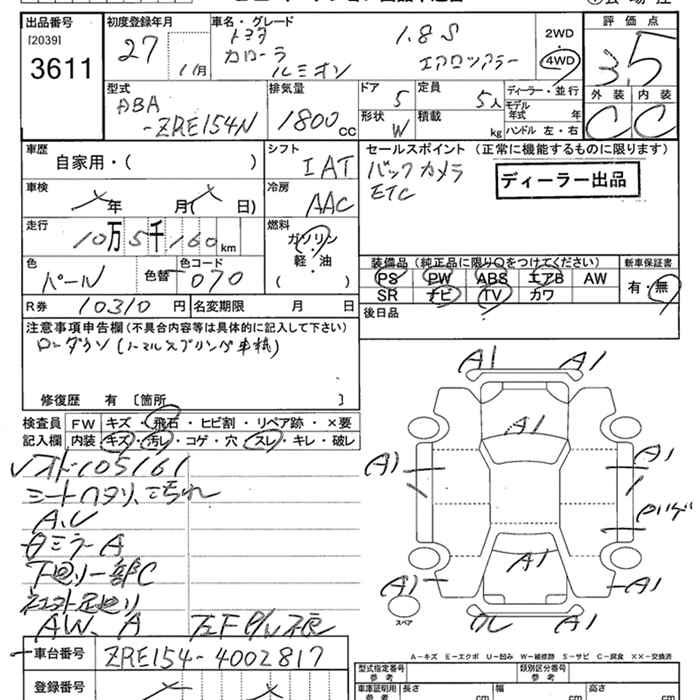 出品番号 初度登録年月 車名・グレード 評価点
[2039] トヨタ 1.8S 2WD
3611 27 1月 カローラ ルミオン エアロツアラー 4WD 3.5
型式 排気量 ドア 定員 ディーラー・並行 外装 内装
ABA -ZRE154N 1800cc 5 5人 モデル年式 年 C C
形状 W 積載 kg ハンドル 左・右
車歴 シフト セールスポイント (正常に機能するものに限ります)
自家用・( ) IAT バックカメラ
ETC ディーラー出品
車検 年 月( 日) 冷房 AAC
走行 10万5千160km 燃料 ガソリン・軽・油 ( )
装備品 (純正品に限り○をつけてください) 新車保証書
色 パール 色替 色コード 070 PS PW ABS エアB AW 有・無
SR ナビ TV カワ
R券 10310円 名変期限 月 日 後日品
注意事項申告欄(不具合内容等は具体的に記入して下さい)
ローダウン(ノーマルスプリング車載)
修復歴 有 [箇所 ]
検査員 FW キズ・飛石・ヒビ割・リペア跡・×要
記入欄 内装 キズ・汚レ・コゲ・穴・スレ・キレ・破レ
105161
シートヘタリ、汚れ
A.U
ミラーA
下廻り一部C
AW、A
車台番号 ZRE154-4002817
登録番号
A1 A1
A1
A1 A1
A1
A1 A1
スペア A1
A-キズ E-エクボ U-凹み W-補修跡 S-サビ C-腐食 ××-交換済
型式指定番号 類別区分番号
参考 参考
車庫証明用 長さ 幅 高さ
参考 cm cm cm